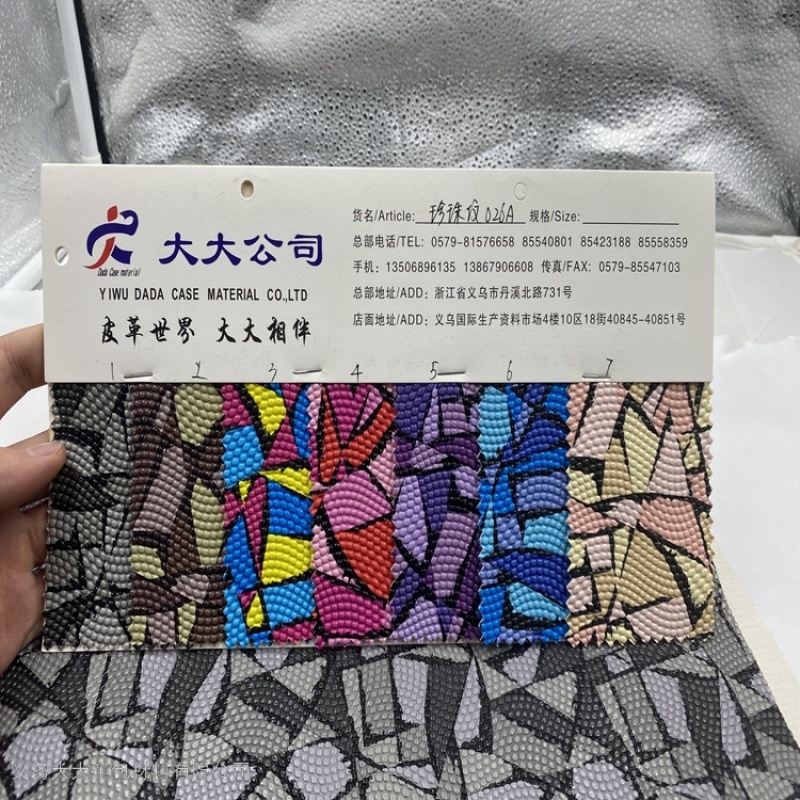 Dada Case material
大大公司
YIWU DADA CASE MATERIAL CO.,LTD
皮革世界 大大相伴
货名/Article: 珍珠纹026A 规格/Size:
总部电话/TEL: 0579-81576658 85540801 85423188 85558359
手机: 13506896135 13867906608 传真/FAX: 0579-85547103
总部地址/ADD: 浙江省义乌市丹溪北路731号
店面地址/ADD: 义乌国际生产资料市场4楼10区18街40845-40851号
1 2 3 4 5 6 7